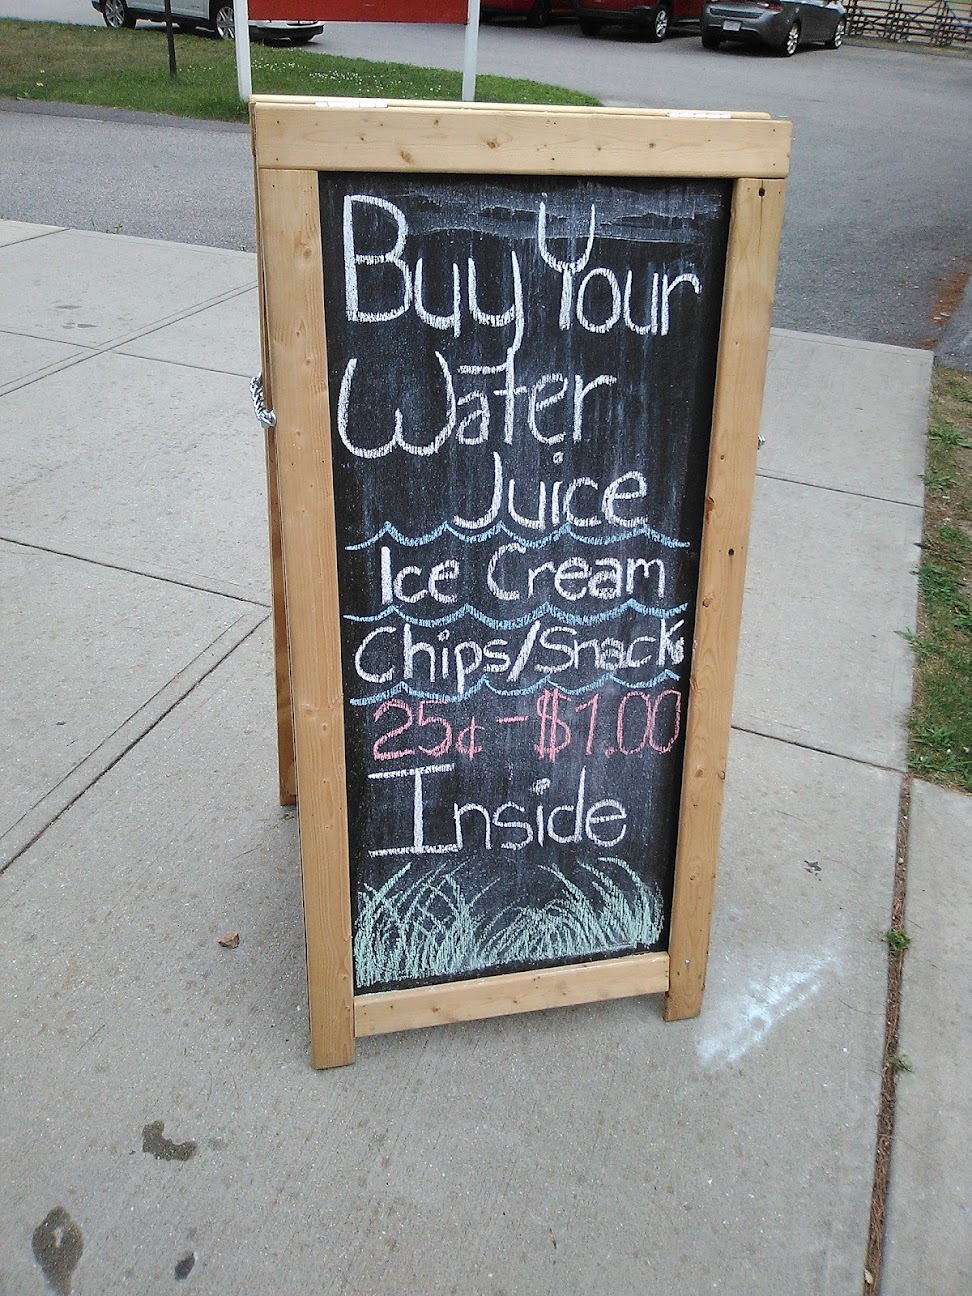 Buy Your
Water
Juice
Ice Cream
Chips/Snacks
25¢-$1.00
Inside